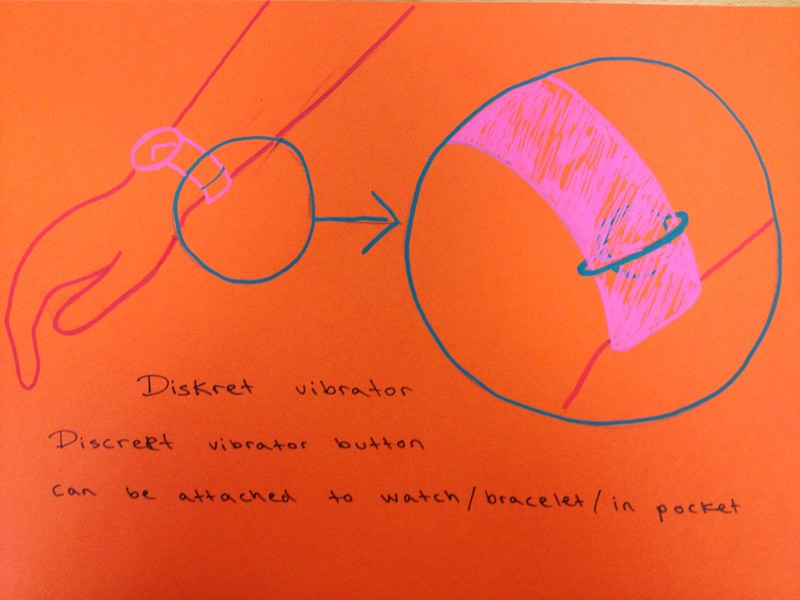 Diskret vibrator
Discreet vibrator button
can be attached to watch/bracelet/in pocket